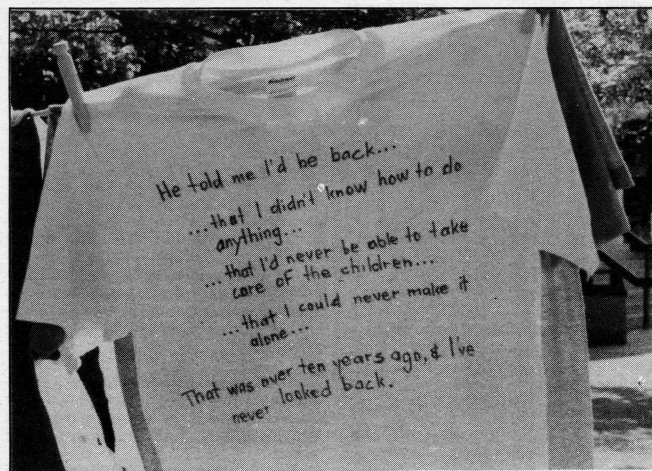 He told me I'd be back...
...that I didn't know how to do
anything...
...that I'd never be able to take
care of the children...
...that I could never make it
alone...
That was over ten years ago, & I've
never looked back.